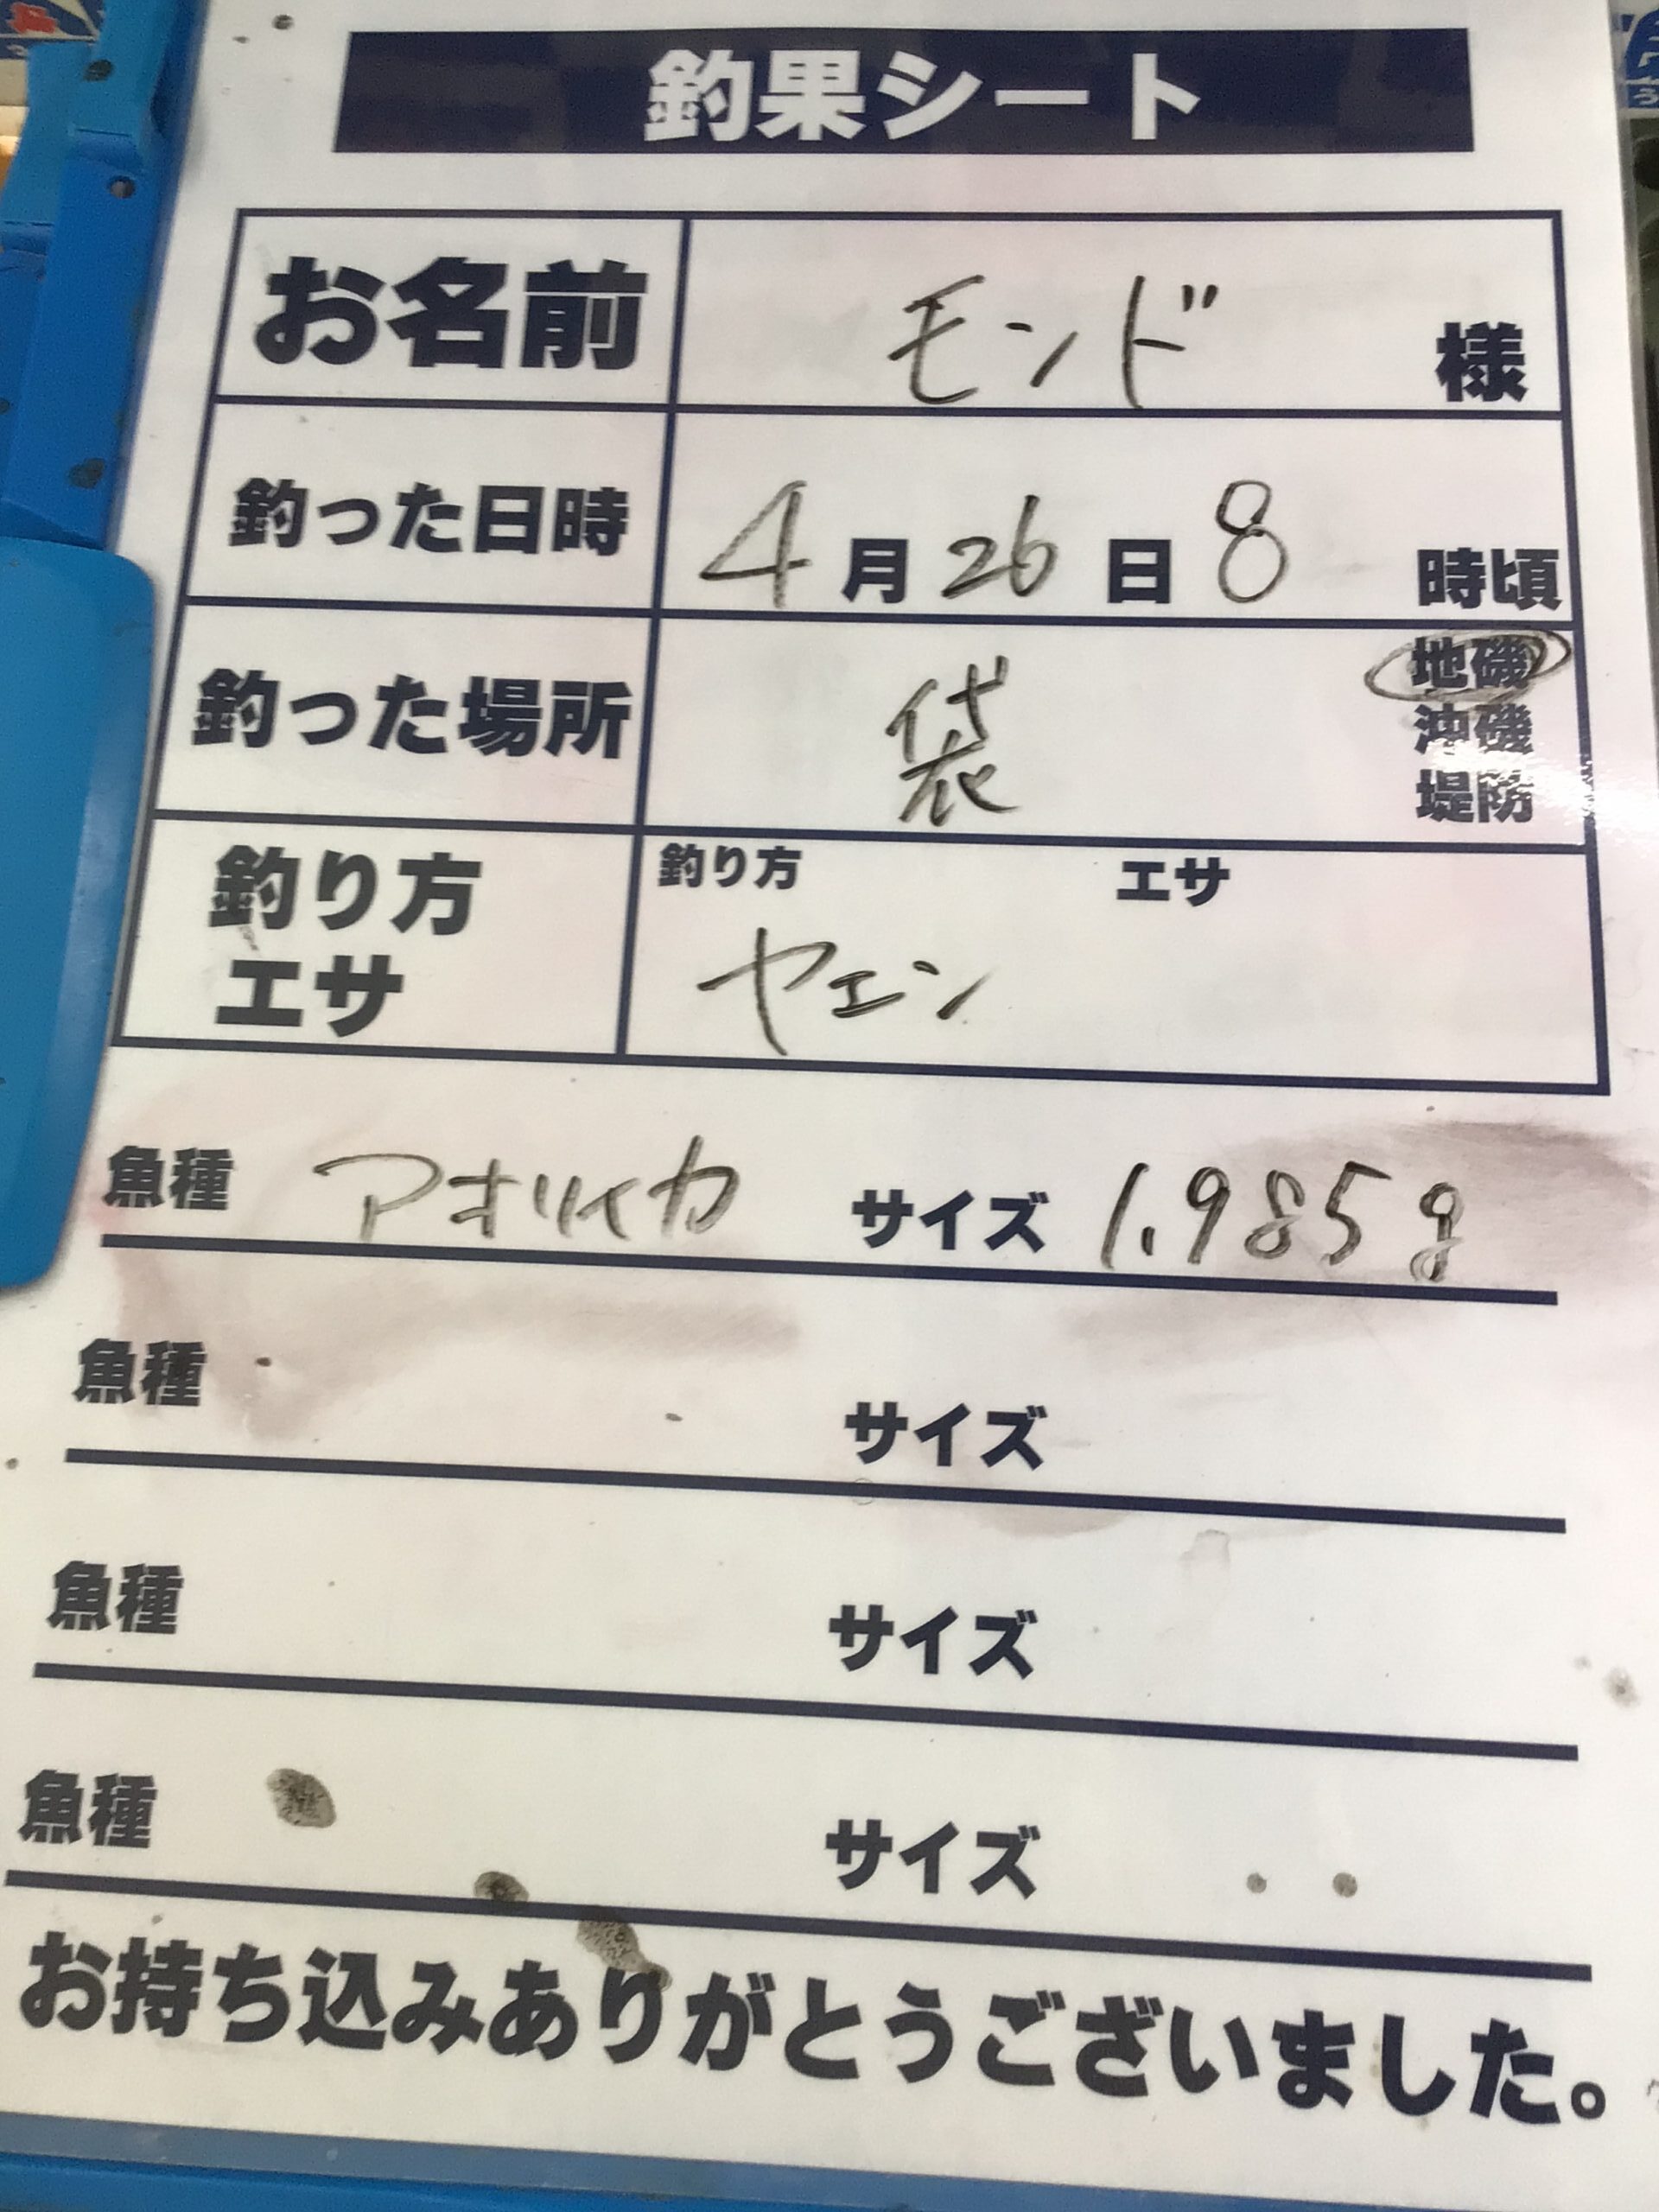 釣果シート
お名前 モンド 様
釣った日時 4月26日8 時頃
釣った場所 袋 地磯
沖磯
堤防
釣り方 エサ
釣り方
エサ
ヤエン
魚種 アオリイカ サイズ 1.985g
魚種 サイズ
魚種 サイズ
魚種 サイズ
お持ち込みありがとうございました。